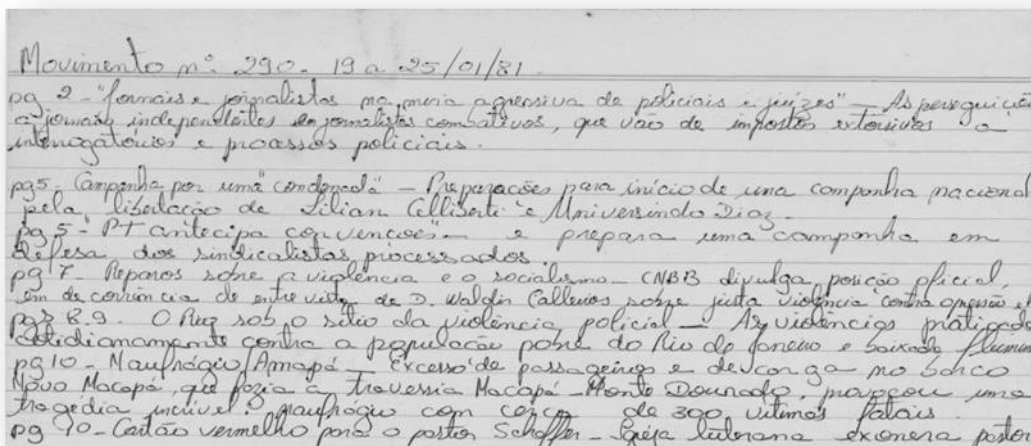 Movimento nº 290 - 19 a 25/01/81.
pg 2 - "Jornais e jornalistas na mira agressiva de policiais e juízes" - As perseguiçõe
a jornais independentes e a jornalistas combativos, que vão de impostos extorsivos a
interrogatórios e processos policiais.
pg 5. Campanha por uma "condenada" - Preparações para início de uma campanha nacional
pela libertação de Lilian Celliberti e Universindo Diaz.
pg 5 - PT antecipa convenções - e prepara uma campanha em
defesa dos sindicalistas processados.
pg 7 - Reparos sobre a violência e o socialismo - CNBB divulga posição oficial,
em decorrência de entrevista de D. Waldir Calleiros sobre justa violência contra opressão
pgs 8.9. O Rio sob o sítio da violência policial - As violências praticad
cotidianamente contra a população pobre do Rio de Janeiro e baixada flumin
pg 10 - Naufrágio/Amapá - Excesso de passageiros e de carga no barco
Novo Macapá, que fazia a travessia Macapá - Monte Dourado, provocou uma
tragédia incrível: naufrágio com cerca de 300 vítimas fatais.
pg 10 - Cartão vermelho para o pastor Schaffer - Igreja luterana exonera pastor